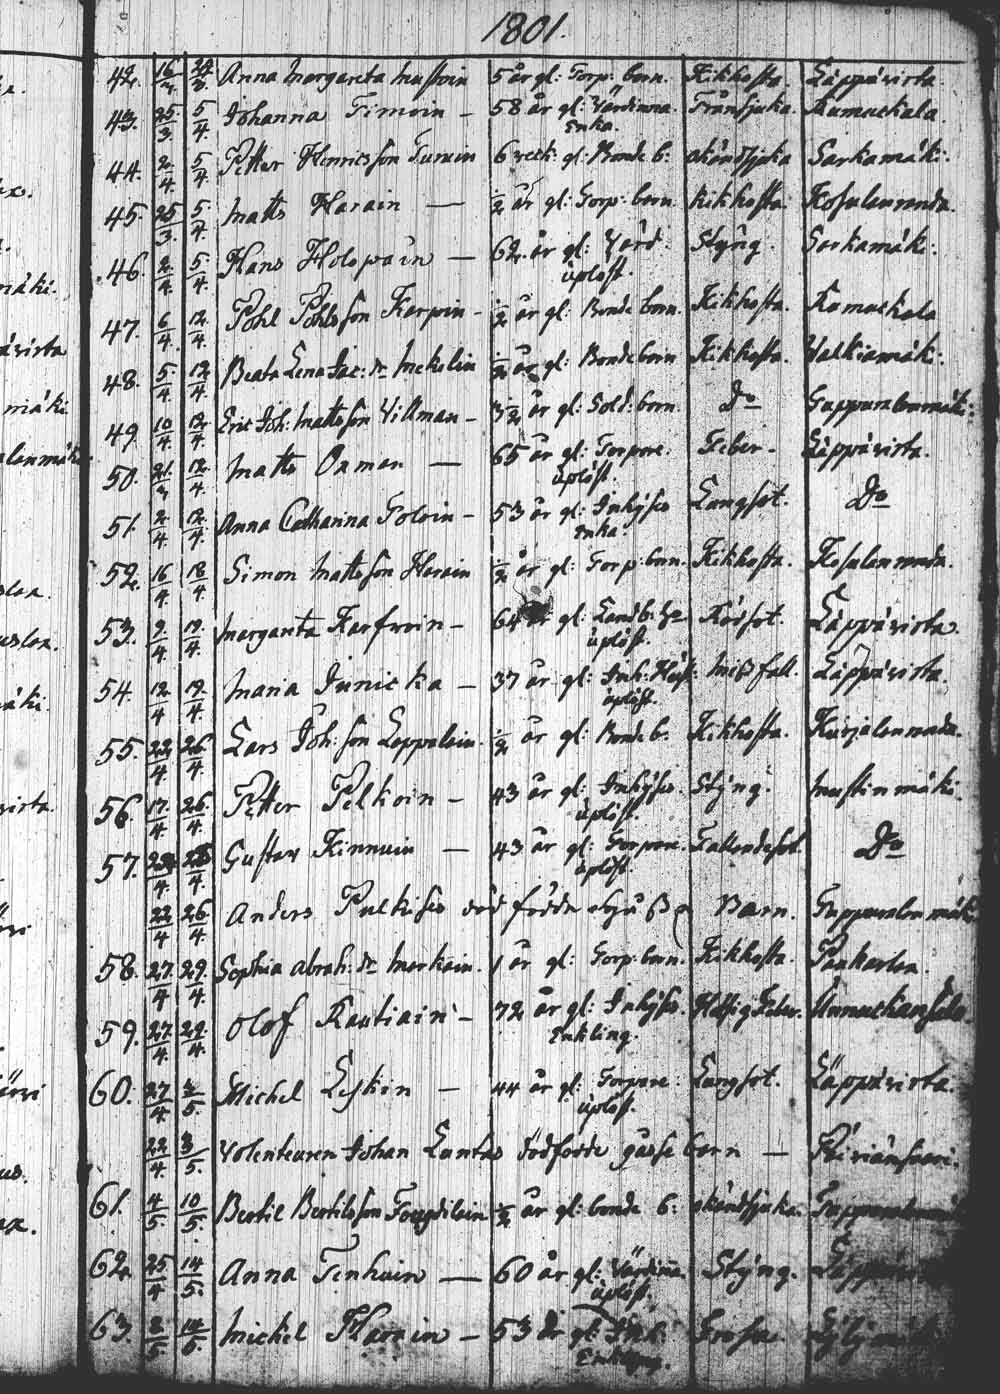 1801.
42. 16/3 29/3 Anna Margareta Mustoin 5 år gl: Torp: barn. Kikhosta. Läppävirta.
43. 25/3. 5/4. Johanna Timoin — 58 år gl. Värdinna. Tränsjuka. Kamuckala.
Enka.
44. 2/4. 5/4. Petter Henricsson Turuin 6 veck: gl: Bonde b: okändsjuka Sarkamäki.
45. 25/3. 5/4. Matts Harain — 1/2 år gl: Torp: barn Kikhosta. Kosulanranda.
46. 2/4. 5/4. Hans Holopain — 62. år gl: Värd. Styng. Sarkamäki:
uplöst.
47. 6/4. 12/4. Pohl Pohlsson Karpin — 1/2 år gl: Bonde barn. Kikhosta. Kamuckala
48. 5/4. 12/4. Beata Lena Jac: dr Mekelin 1/2 år gl: Bondebarn Kikhosta. Valkiamäki:
49. 10/4 12/4. Eric Joh: Mattsson Villman — 3 1/2 år gl: Sold: barn. Do Tuppuralanmäki:
50. 21/3 12/4. Matts Oxman — 65 år gl: Torpare. Feber. Läppävirta.
uplöst.
51. 2/4. 12/4. Anna Catharina Toloin — 53 år gl: Inhyses Lungsot. Do
Enka.
52. 16/4. 18/4. Simon Mattsson Harain 1/2 år gl: Torp: barn. Kikhosta. Kosulanranda.
53. 9/4. 19/4. Margareta — 64 år gl: Rödsot. Läppävirta.
uplöst.
54. 12/4 19/4. Maria Junicka — 37 år gl: Inh: Missfall. Läppävirta.
uplöst.
55. 22/4. 26/4. Lars Joh: son Leppelain 1/2 år gl: Bonde b. Kikhosta. Kurjalanranda.
56. 17/4. 26/4. Petter Pelkoin — 43 år gl: Inhyses Styng. Mustinmäki.
uplöst.
57. 22/4. 26/4. Gustav Kinnuin — 43 år gl: Torpare. Fallandesot. Do
uplöst.
22/4 26/4. Anders Pulkises död födda Barn. Tuppuralanmäki
58. 27/4 29/4. Sophia Abrah: dr Markain. 1 år gl: Torp: barn. Kikhosta. Paukarlax.
59. 27/4. 29/4. Olof Rautiain — 72 år gl: Inhyses. Hetsig Feber.
Enkling.
60. 27/4 3/5. Michel Eskin — 44 år gl: Torpare: Lungsot. Läppävirta.
uplöst.
22/4. 3/5. Volenteuren Johan Luntas dödfödde gosse barn —
61. 4/5. 10/5. Bertil Bertilsson 1/2 år gl: bonde b: okändsjuka.
62. 25/4 14/5. Anna Tenhuin — 60 år gl: Värdinna Styng.
uplöst.
63. 2/5 14/5. Mickel Harain — 53 år gl: Inh:
Enkling.